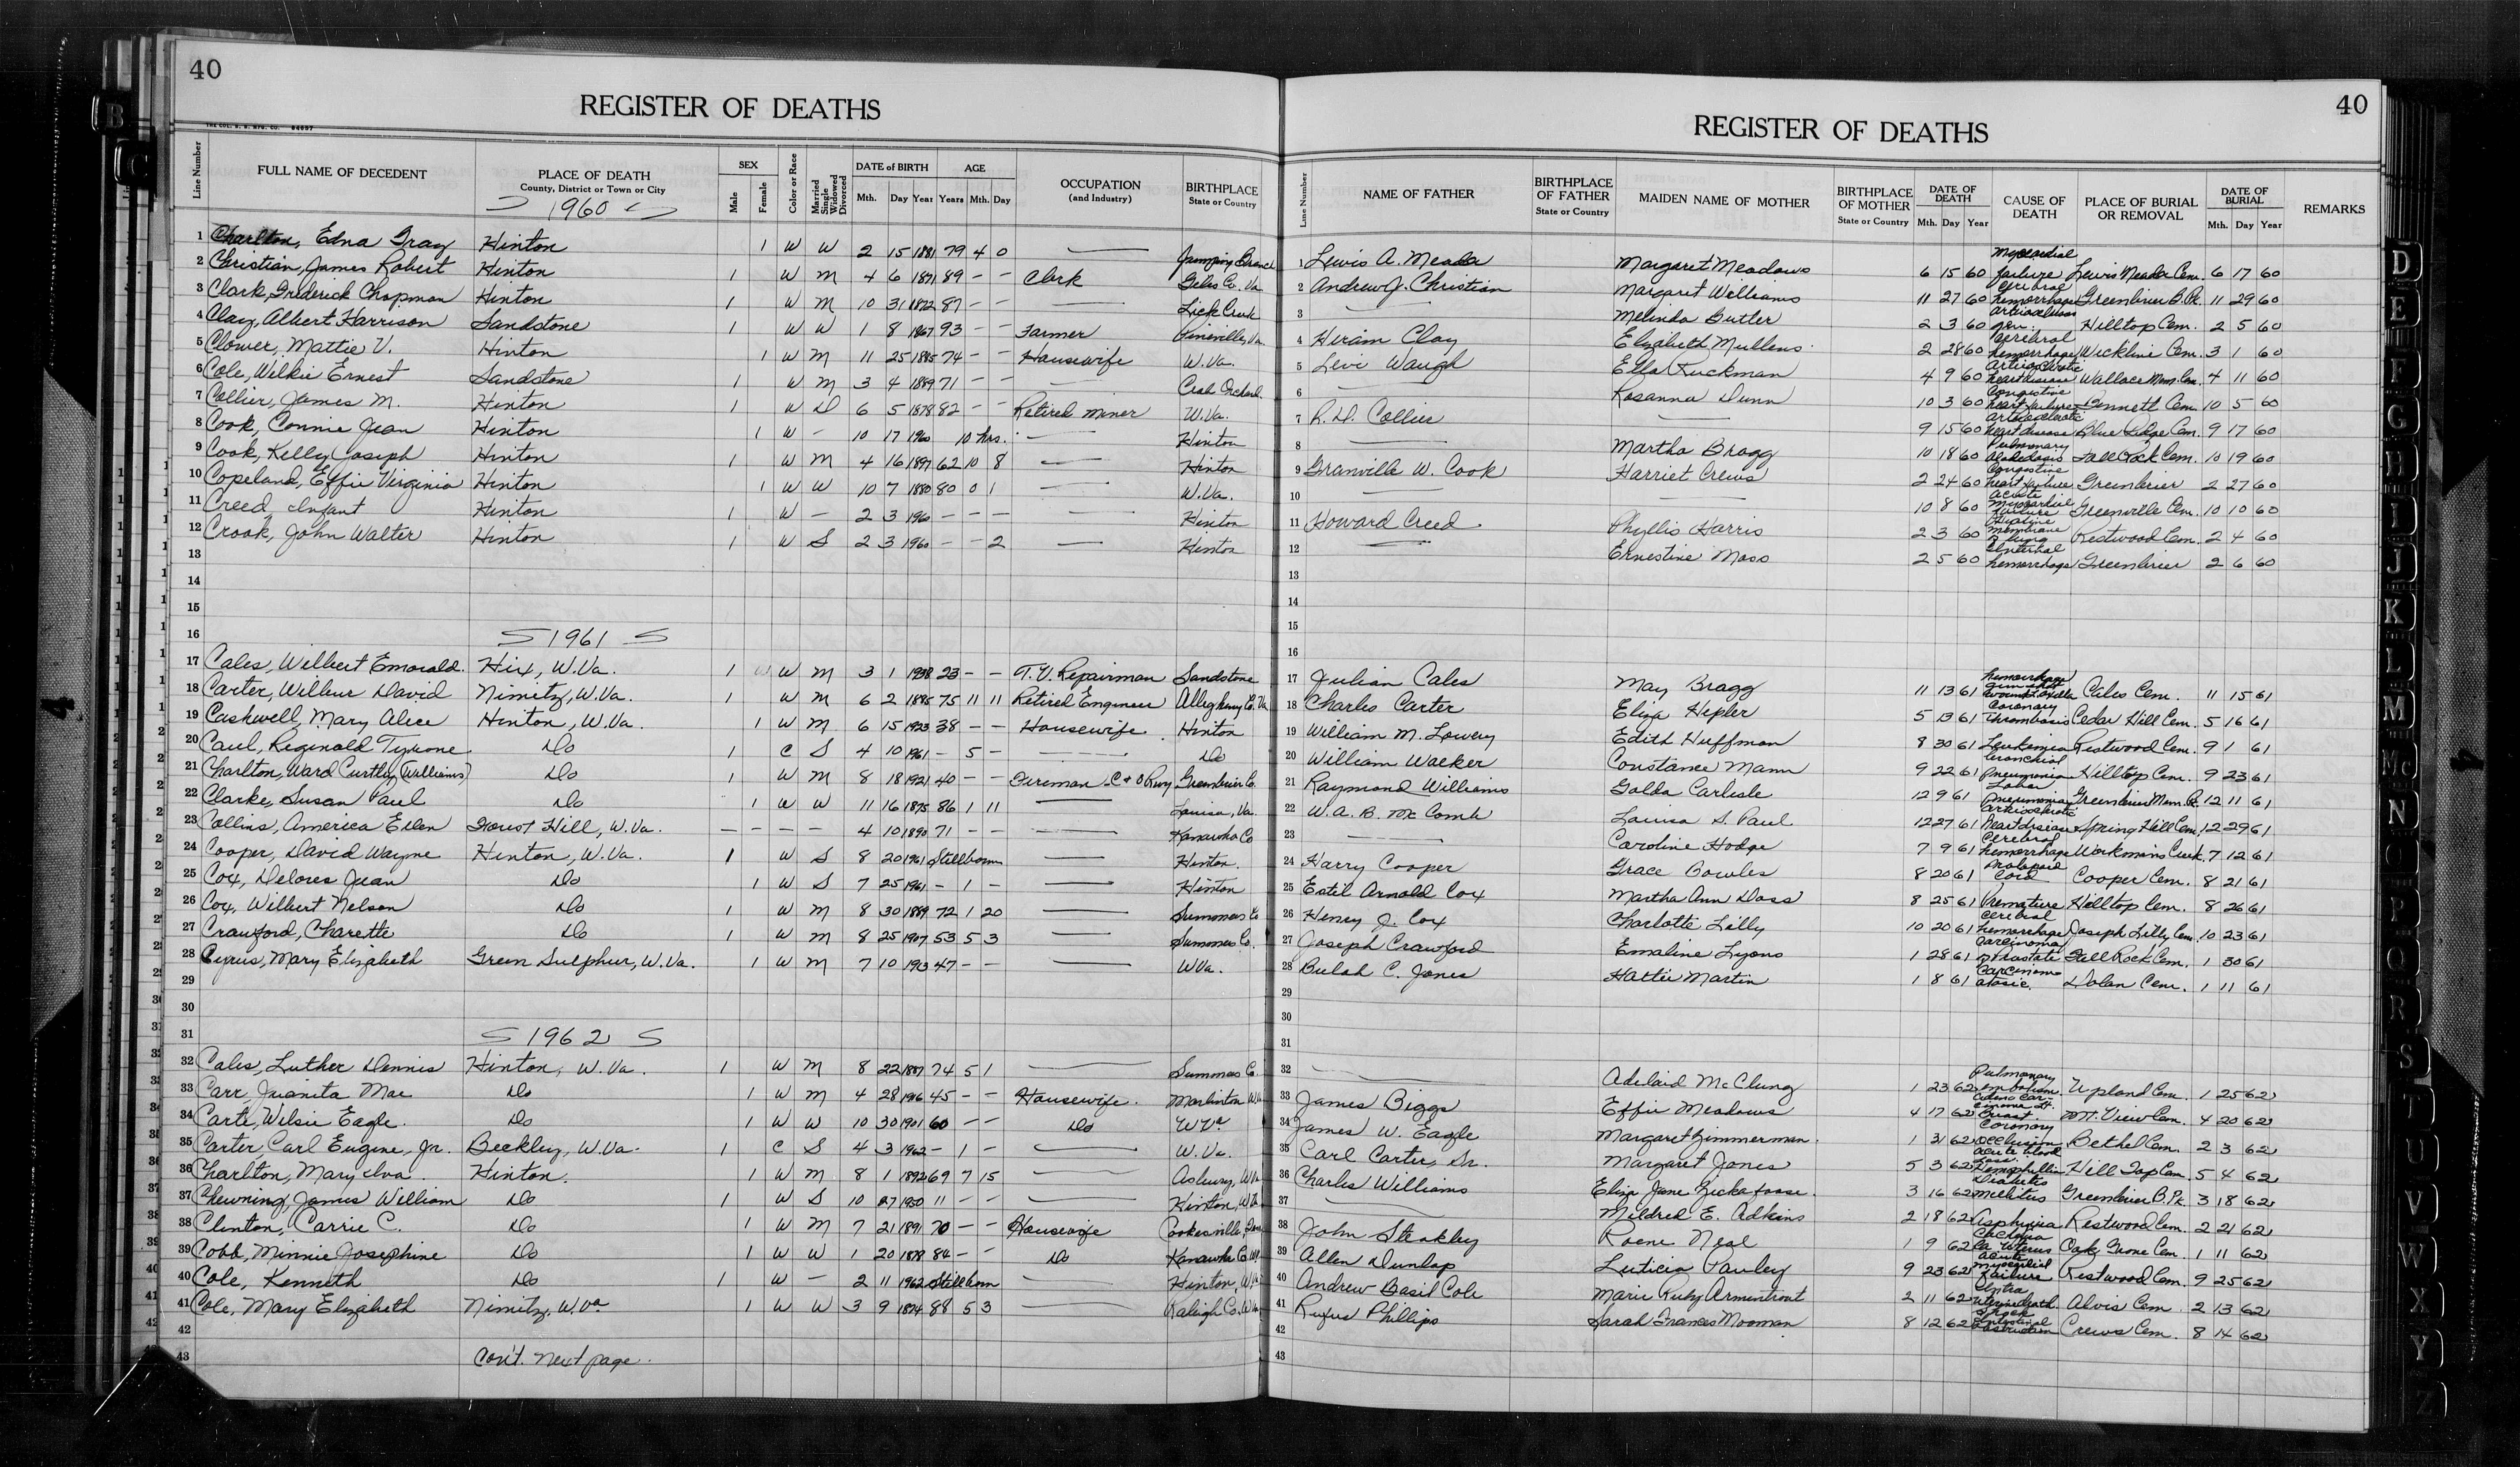 40
REGISTER OF DEATHS
Line Number
FULL NAME OF DECEDENT
PLACE OF DEATH
County, District or Town or City
1960
SEX
Male
Female
Color or Race
Married Single Widowed Divorced
DATE of BIRTH
Mth. Day Year
AGE
Years Mth. Day
OCCUPATION
(and Industry)
BIRTHPLACE
State or Country
1 Charlton, Edna Gray Hinton 1 W W 2 15 1881 79 4 0 — Jumping Branch
2 Christian, James Robert Hinton 1 W M 4 6 1871 89 – – Clerk Giles Co. Va
3 Clark, Frederick Chapman Hinton 1 W M 10 31 1872 87 – – — Lick Creek
4 Clay, Albert Harrison Sandstone 1 W W 1 8 1867 93 – – Farmer Pineville, Va.
5 Clower, Mattie V. Hinton 1 W M 11 25 1885 74 – – Housewife W.Va.
6 Cole, Wilkie Ernest Sandstone 1 W M 3 4 1889 71 – – — Crab Orchard
7 Collier, James M. Hinton 1 W D 6 5 1878 82 – – Retired miner W.Va.
8 Cook, Connie Jean Hinton 1 W – 10 17 1960 10 hrs. — Hinton
9 Cook, Kelly Joseph Hinton 1 W M 4 16 1897 62 10 8 — Hinton
10 Copeland, Effie Virginia Hinton 1 W W 10 7 1880 80 0 1 — W.Va.
11 Creed, Infant Hinton 1 W – 2 3 1960 – – – — Hinton
12 Crook, John Walter Hinton 1 W S 2 3 1960 – – 2 — Hinton
13
14
15
16 1961
17 Cales, Wilbert Emerald. Hix, W.Va. 1 W M 3 1 1938 23 – – T.V. Repairman Sandstone
18 Carter, Wilbur David Nimitz, W.Va. 1 W M 6 2 1885 75 11 11 Retired Engineer Alleghany Co. Va
19 Cashwell, Mary Alice Hinton, W.Va. 1 W M 6 15 1923 38 – – Housewife Hinton
20 Caul, Reginald Tyrone Do 1 C S 4 10 1961 – 5 – — Do
21 Charlton, Ward Curtly (Williams) Do 1 W M 8 18 1921 40 – – Fireman C & O Rwy Greenbrier Co.
22 Clarke, Susan Paul Do 1 W W 11 16 1875 86 1 11 — Louisa, Va.
23 Collins, America Ellen Forest Hill, W.Va. – – – – 4 10 1890 71 – – — Kanawha Co
24 Cooper, David Wayne Hinton, W.Va. 1 W S 8 20 1961 Stillborn — Hinton
25 Cox, Delores Jean Do 1 W S 7 25 1961 – 1 – — Hinton
26 Cox, Wilbert Nelson Do 1 W M 8 30 1889 72 1 20 — Summers Co
27 Crawford, Charette Do 1 W M 8 25 1907 53 5 3 — Summers Co.
28 Cyrus, Mary Elizabeth Green Sulphur, W.Va. 1 W M 7 10 1913 47 – – — W.Va.
29
30
31 1962
32 Cales, Luther Dennis Hinton, W.Va. 1 W M 8 22 1887 74 5 1 — Summers Co.
33 Carr, Juanita Mae Do 1 W M 4 28 1916 45 – – Housewife. Marlinton W.Va
34 Carte, Wilsie Eagle. Do 1 W W 10 30 1901 60 – – Do W.Va
35 Carter, Carl Eugene, Jr. Beckley, W.Va. 1 C S 4 3 1962 – 1 – — W.Va.
36 Charlton, Mary Iva Hinton. 1 W M 8 1 1892 69 7 15 — Asbury, W.Va
37 Chewning, James William Do 1 W S 10 27 1950 11 – – — Hinton, W.Va.
38 Clinton, Carrie C. Do 1 W M 7 21 1891 70 – – Housewife Cookesville, Tenn
39 Cobb, Minnie Josephine Do 1 W W 1 20 1878 84 – – Do Kanawha Co.
40 Cole, Kenneth Do 1 W – 2 11 1962 Stillborn — Hinton, W.Va.
41 Cole, Mary Elizabeth Nimitz, W.Va 1 W W 3 9 1874 88 5 3 — Raleigh Co.
42
43 Con't. Next page.
40
REGISTER OF DEATHS
Line Number
NAME OF FATHER
BIRTHPLACE OF FATHER
State or Country
MAIDEN NAME OF MOTHER
BIRTHPLACE OF MOTHER
State or Country
DATE OF DEATH
Mth. Day Year
CAUSE OF DEATH
PLACE OF BURIAL OR REMOVAL
DATE OF BURIAL
Mth. Day Year
REMARKS
1 Lewis A. Meador Margaret Meadows 6 15 60 Myocardial failure Lewis Meador Cem. 6 17 60
2 Andrew J. Christian Margaret Williams 11 27 60 Cerebral hemorrhage Greenbrier B. Pk. 11 29 60
3 — Melinda Butler 2 3 60 Hilltop Cem. 2 5 60
4 Hiram Clay Elizabeth Mullens 2 28 60 Cerebral hemorrhage Wickline Cem. 3 1 60
5 Levi Waugh Ella Ruckman 4 9 60 Arteriosclerotic heart disease Wallace Mem. Cem. 4 11 60
6 — Rosanna Dunn 10 3 60 Congestive heart failure Bennett Cem. 10 5 60
7 R. D. Collier — 9 15 60 Arteriosclerotic heart disease Blue Ridge Cem. 9 17 60
8 — Martha Bragg 10 18 60 Pulmonary Fall Rock Cem. 10 19 60
9 Granville W. Cook Harriet Crews 2 24 60 Congestive heart failure Greenbrier 2 27 60
10 — — 10 8 60 Acute myocardial failure Greenville Cem. 10 10 60
11 Howard Creed Phyllis Harris 2 3 60 Hyaline membrane Restwood Cem. 2 4 60
12 — Ernestine Moss 2 5 60 hemorrhage Greenbrier 2 6 60
13
14
15
16
17 Julian Cales May Bragg 11 13 61 hemorrhage gun shot wound Cales Cem. 11 15 61
18 Charles Carter Eliza Hepler 5 13 61 Coronary thrombosis Cedar Hill Cem. 5 16 61
19 William M. Lowery Edith Huffman 8 30 61 Leukemia Restwood Cem. 9 1 61
20 William Walker Constance Mann 9 22 61 Bronchial pneumonia Hilltop Cem. 9 23 61
21 Raymond Williams Golda Carlisle 12 9 61 Lobar pneumonia Greenbrier Mem. Pk. 12 11 61
22 W. A. B. McComb Louisa S. Paul 12 27 61 Arteriosclerotic heart disease Spring Hill Cem. 12 29 61
23 — Caroline Hodge 7 9 61 Cerebral hemorrhage Workmans Creek 7 12 61
24 Harry Cooper Grace Bowles 8 20 61 Prolapsed Cord Cooper Cem. 8 21 61
25 Estil Arnold Cox Martha Ann Doss 8 25 61 Premature Hilltop Cem. 8 26 61
26 Henry J. Cox Charlotte Lilly 10 20 61 Cerebral hemorrhage Joseph Lilly Cem. 10 23 61
27 Joseph Crawford Emaline Lyons 1 28 61 Carcinoma prostate Fall Rock Cem. 1 30 61
28 Bulah C. Jones Hattie Martin 1 8 61 Dolan Cem. 1 11 61
29
30
31
32 — Adelaid McClung 1 23 62 Pulmonary embolism Upland Cem. 1 25 62
33 James Biggs Effie Meadows 4 17 62 Mt. View Cem. 4 20 62
34 James W. Eagle Margaret Zimmerman 1 31 62 Coronary occlusion Bethel Cem. 2 3 62
35 Carl Carter, Sr. Margaret Jones 5 3 62 Acute blood loss Hemophilia Hill Top Cem. 5 4 62
36 Charles Williams Eliza Jane Zickafoose 3 16 62 Diabetes mellitus Greenbrier B. Pk. 3 18 62
37 — Mildred E. Adkins 2 18 62 Asphyxia Restwood Cem. 2 21 62
38 John Steakley Roene Neal 1 9 62 Cachexia Ca. Uterus Oak Grove Cem. 1 11 62
39 Allen Dunlap Luticia Pauley 9 23 62 Acute myocardial failure Restwood Cem. 9 25 62
40 Andrew Basil Cole Marie Ruby Armentrout 2 11 62 Intra uterine death Alvis Cem. 2 13 62
41 Rufus Phillips Sarah Frances Mooman 8 12 62 Shock Intestinal obstruction Crews Cem. 8 14 62
42
43
B
C
D
E
F
G
H
I
J
K
L
M
Mc
N
O
P
Q
R
S
T
U
V
W
X
Y
Z